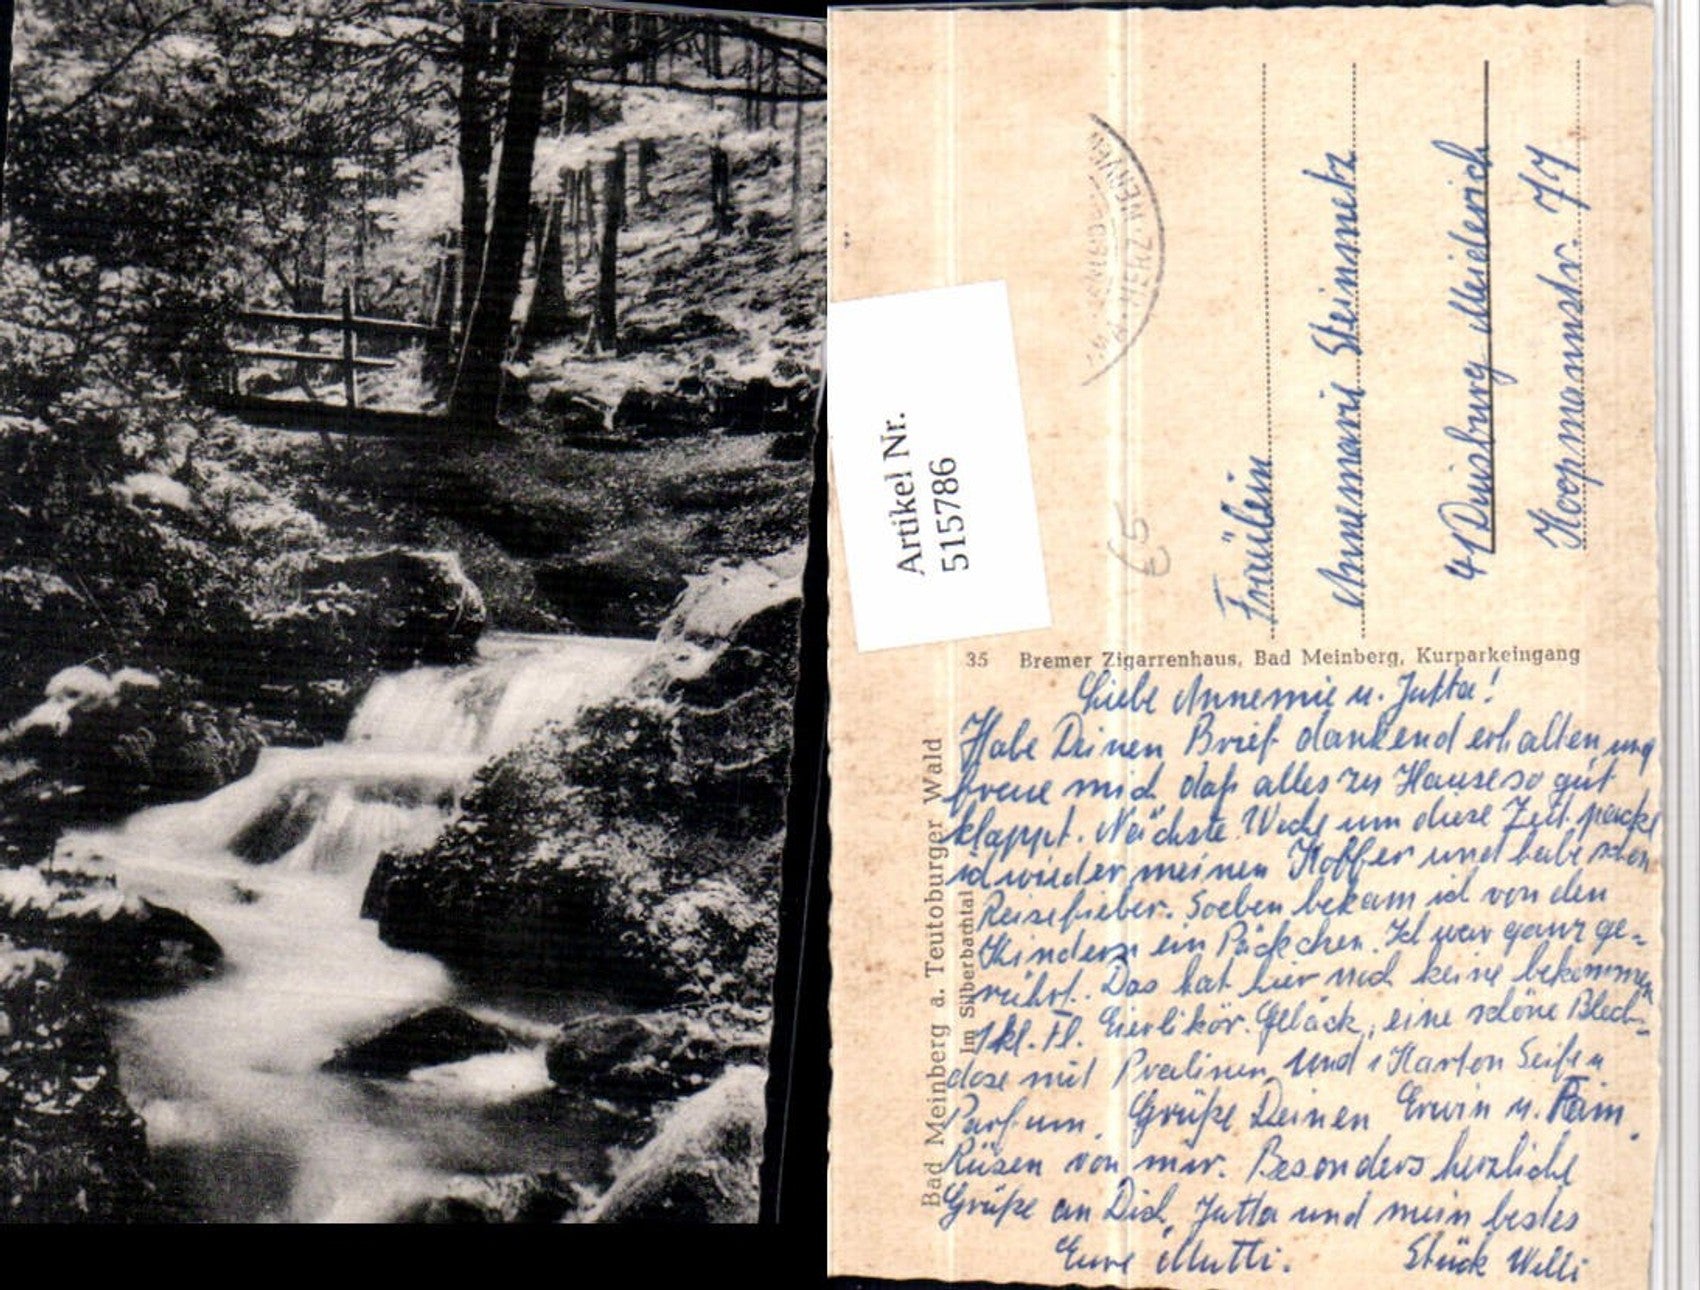 Artikel Nr.
515786
HERZ·NERVEN
Fräulein
Annemarie Steinmetz
41 Duisburg Meiderich
Koopmannstr. 77
35 Bremer Zigarrenhaus, Bad Meinberg, Kurparkeingang
Bad Meinberg a. Teutoburger Wald
Im Silberbachtal
Liebe Annemie u. Jutta!
Habe Deinen Brief dankend erhalten und
freue mich daß alles zu Hause so gut
klappt. Nächste Woche um diese Zeit packe
ich wieder meinen Koffer und habe schon
Reisefieber. Soeben bekam ich von den
Kindern ein Päckchen. Ich war ganz ge-
rührt. Das hat hier noch keine bekommen
1 kl. Fl. Eierlikör. Gebäck, eine schöne Blech-
dose mit Pralinen und 1 Karton Seife u
Parfum. Grüße Deinen Erwin u. Fam.
Rüsen von mir. Besonders herzliche
Grüße an Dich, Jutta und mein bestes
Eure Mutti. Stück Willi